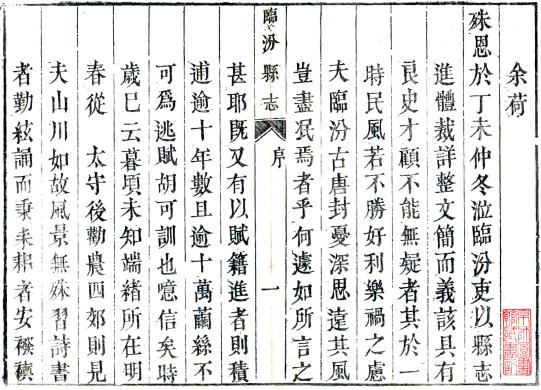 余荷
殊恩於丁未仲冬涖臨汾吏以縣志
進體裁詳整文簡而義該具有
良史才顧不能無疑者其於一
時民風若不勝好利樂禍之慮
夫臨汾古唐封憂深思遠其風
豈盡泯焉者乎何遽如所言之
臨汾縣志
序
一
甚耶既又有以賦籍進者則積
逋逾十年數且逾十萬繭絲不
可爲逃賦胡可訓也噫信矣時
歲已云暮項未知端緒所在明
春從 太守後勸農四郊則見
夫山川如故風景無殊習詩書
者勤絃誦而秉耒耜者安襏襫